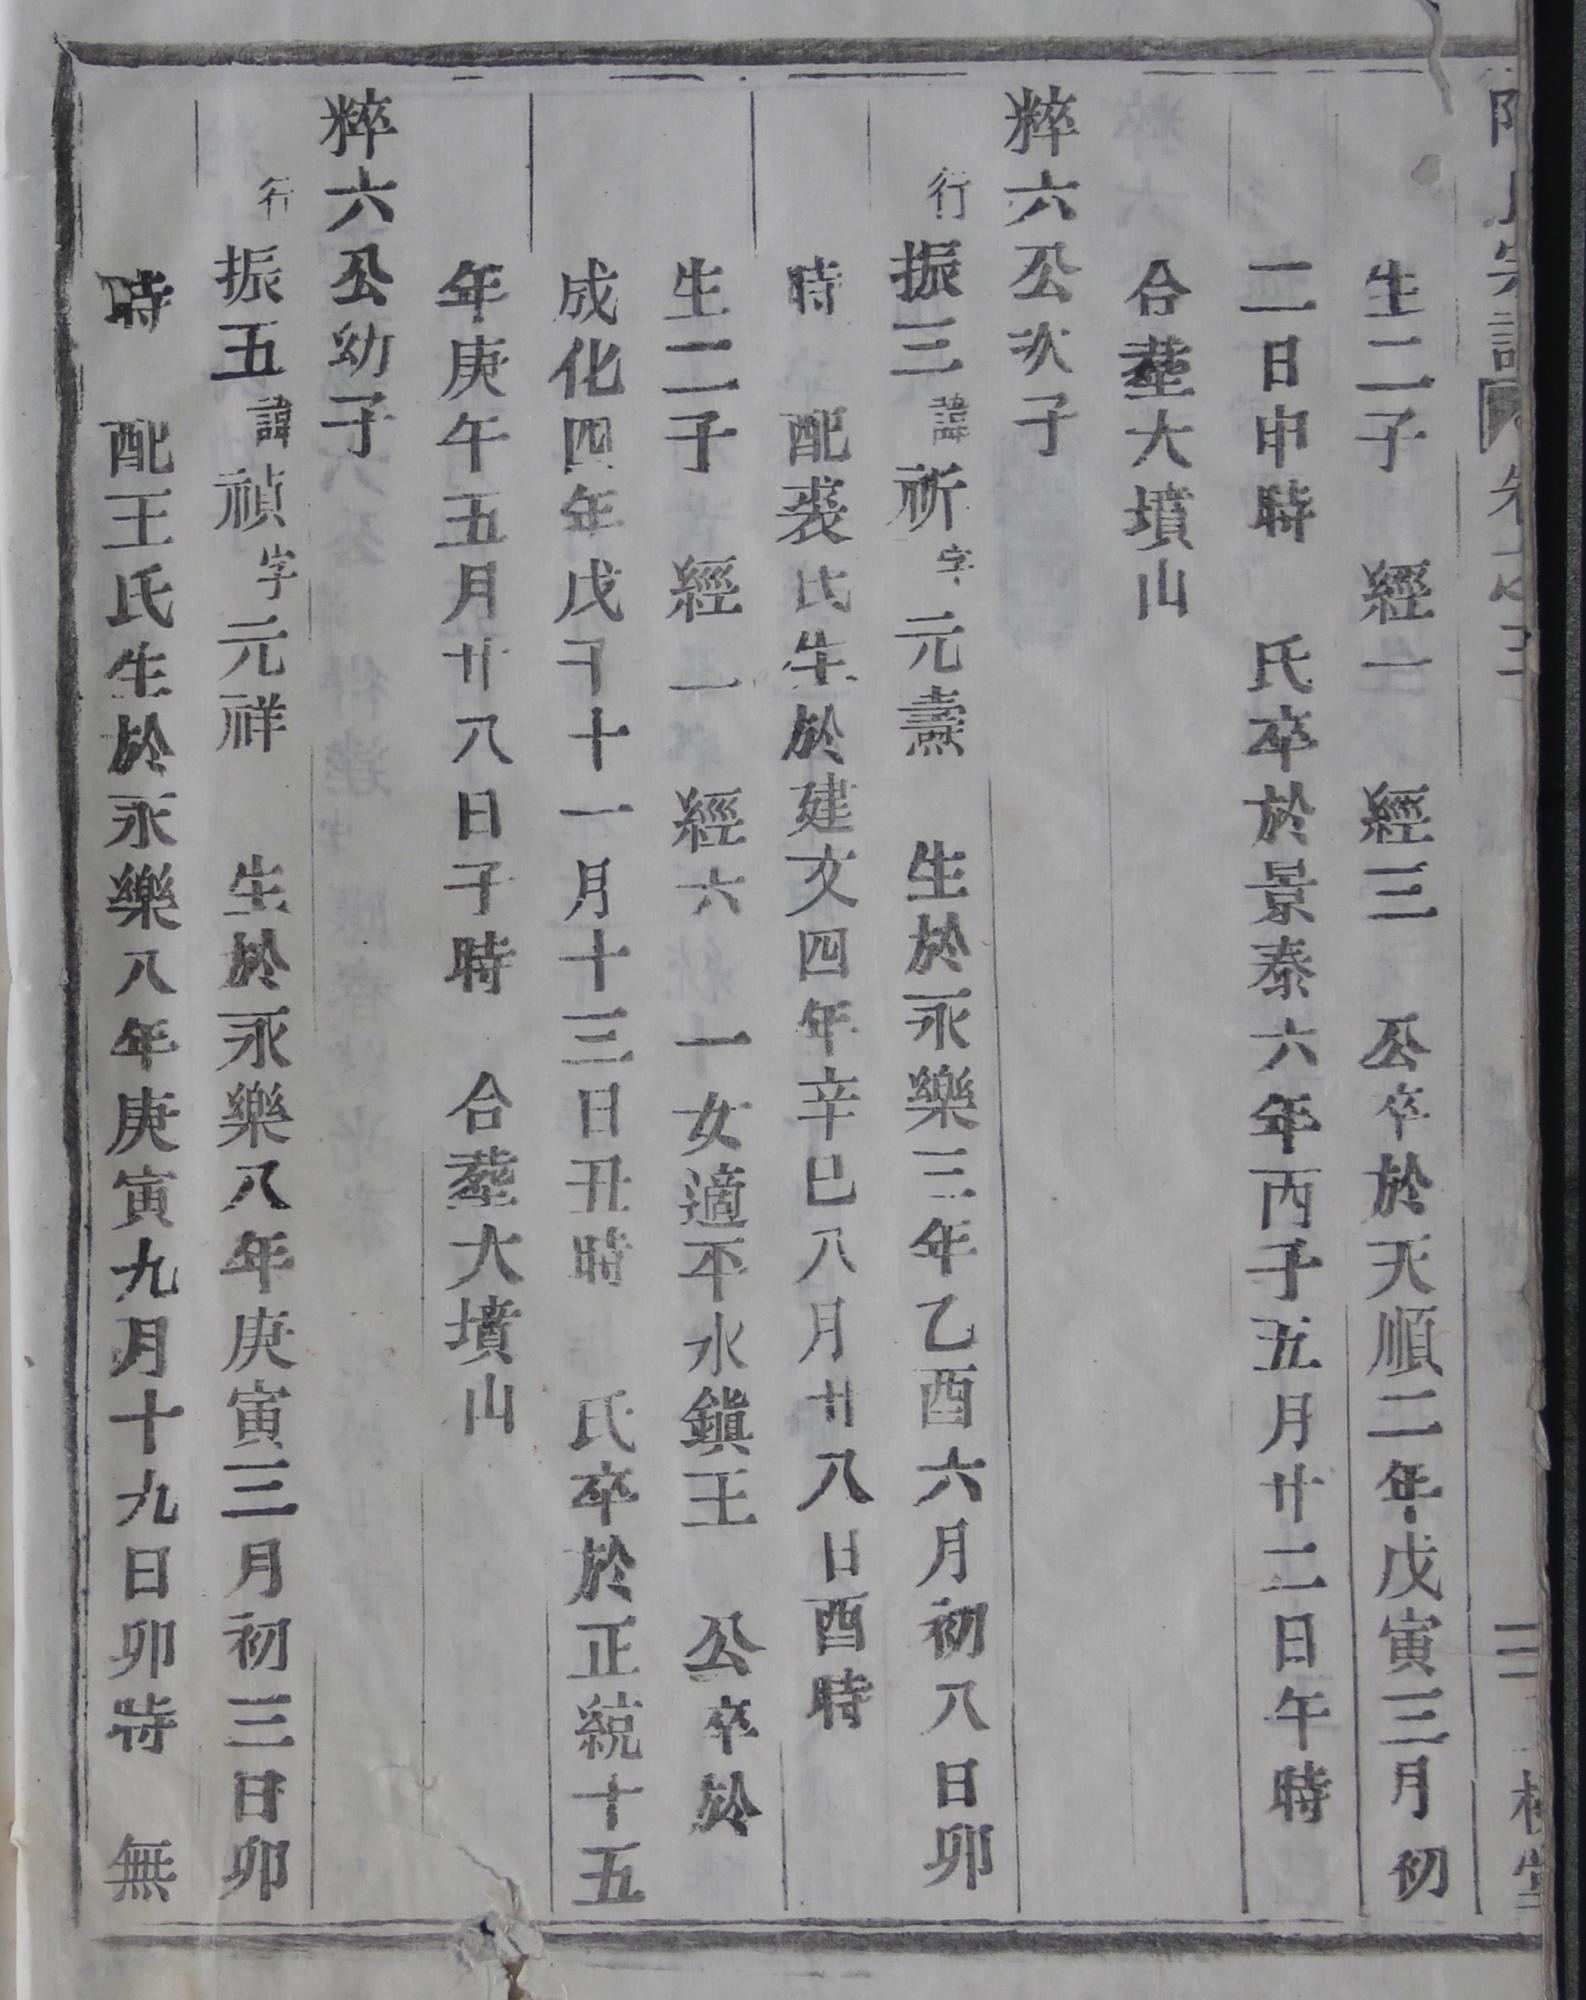 生二子 經一 經三 公卒於天順二年戊寅三月初
二日申時 氏卒於景泰六年丙子五月廿二日午時
合塟大墳山
粹六公次子
行振三諱祈字元壽 生於永樂三年乙酉六月初八日卯
時 配裘氏生於建文四年辛巳八月廿八日酉時
生二子 經一 經六 一女適平水鎭王 公卒於
成化四年戊子十一月十三日丑時 氏卒於正統十五
年庚午五月廿八日子時 合塟大墳山
粹六公幼子
行振五諱禎字元祥 生於永樂八年庚寅三月初三日卯
時 配王氏生於永樂八年庚寅九月十九日卯時 無